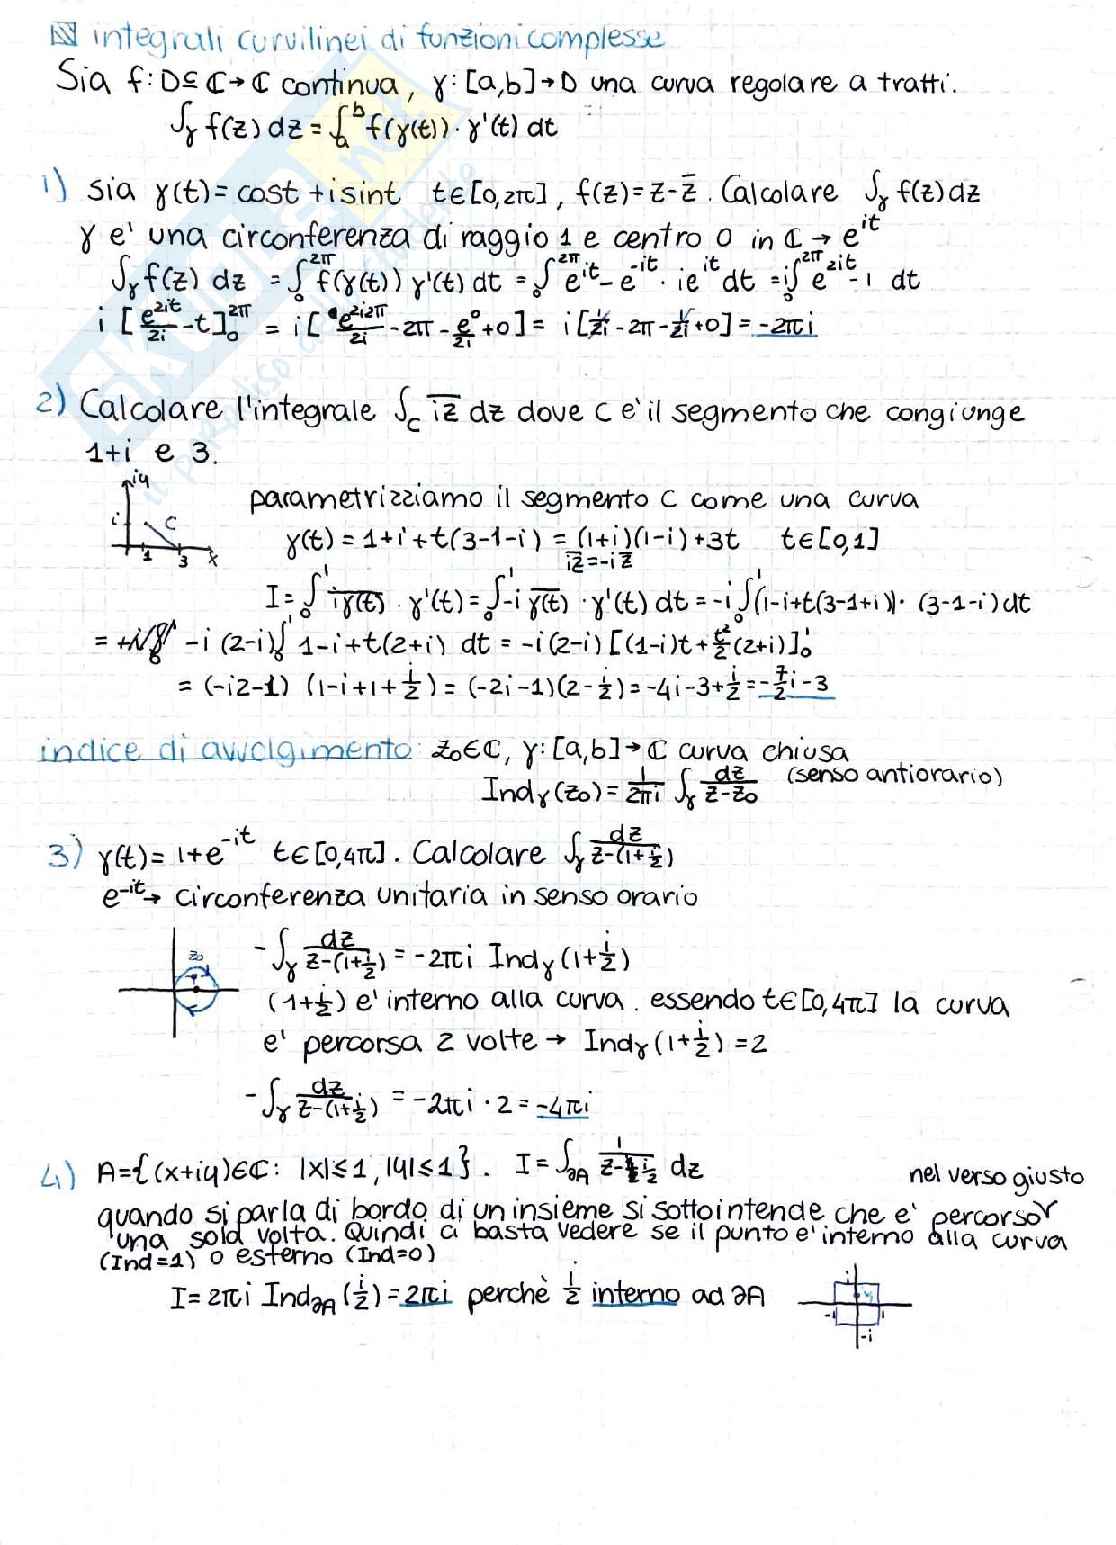 integrali curvilinei di funzioni complesse
Sia f: D⊆ℂ→ℂ continua, γ: [a,b]→D una curva regolare a tratti.
∫γ f(z) dz = ∫a^b f(γ(t)) · γ'(t) dt
1) sia γ(t) = cost + i sint t∈[0,2π], f(z)= z - z̅. Calcolare ∫γ f(z) dz
γ e' una circonferenza di raggio 1 e centro 0 in ℂ → e^it
∫γ f(z) dz = ∫0^2π f(γ(t)) γ'(t) dt = ∫0^2π e^it - e^-it · ie^it dt = i∫0^2π e^2it - 1 dt
i [e^2it/2i - t]0^2π = i [e^2i2π/2i - 2π - e^0/2i + 0] = i [1/2i - 2π - 1/2i + 0] = -2πi
2) Calcolare l'integrale ∫C \overline{iz} dz dove C e' il segmento che congiunge
1+i e 3.
iy
i C
1 3 x
parametrizziamo il segmento C come una curva
γ(t) = 1+i+t(3-1-i) = (1+i)(1-i)+3t t∈[0,1]
\overline{iz} = -i z̅
I = ∫0^1 \overline{iγ(t)} · γ'(t) = ∫0^1 -i \overline{γ(t)} · γ'(t) dt = -i ∫0^1 (1-i+t(3-1+i)) · (3-1-i) dt
= -i (2-i) ∫0^1 1-i+t(2+i) dt = -i(2-i) [(1-i)t + t²/2 (2+i)]0^1
= (-i2-1) (1-i+1+i/2) = (-2i-1)(2-i/2) = -4i-3+i/2 = -7/2 i - 3
indice di avvolgimento: z0∈ℂ, γ: [a,b]→ℂ curva chiusa
Indγ(z0) = 1/2πi ∫γ dz/z-z0 (senso antiorario)
3) γ(t) = 1+e^-it t∈[0,4π]. Calcolare ∫γ dz/z-(1+i/2)
e^-it → circonferenza unitaria in senso orario
z0
-∫γ dz/z-(1+i/2) = -2πi Indγ(1+i/2)
(1+i/2) e' interno alla curva. essendo t∈[0,4π] la curva
e' percorsa 2 volte → Indγ(1+i/2) = 2
-∫γ dz/z-(1+i/2) = -2πi · 2 = -4πi
4) A={(x+iy)∈ℂ: |x|≤1, |y|≤1}. I = ∫∂A 1/z-i/2 dz
nel verso giusto
quando si parla di bordo di un insieme si sottointende che e' percorso
una sola volta. Quindi ci basta vedere se il punto e' interno alla curva
(Ind=1) o esterno (Ind=0)
I = 2πi Ind∂A (i/2) = 2πi perchè i/2 interno ad ∂A
i
-1 1
-i